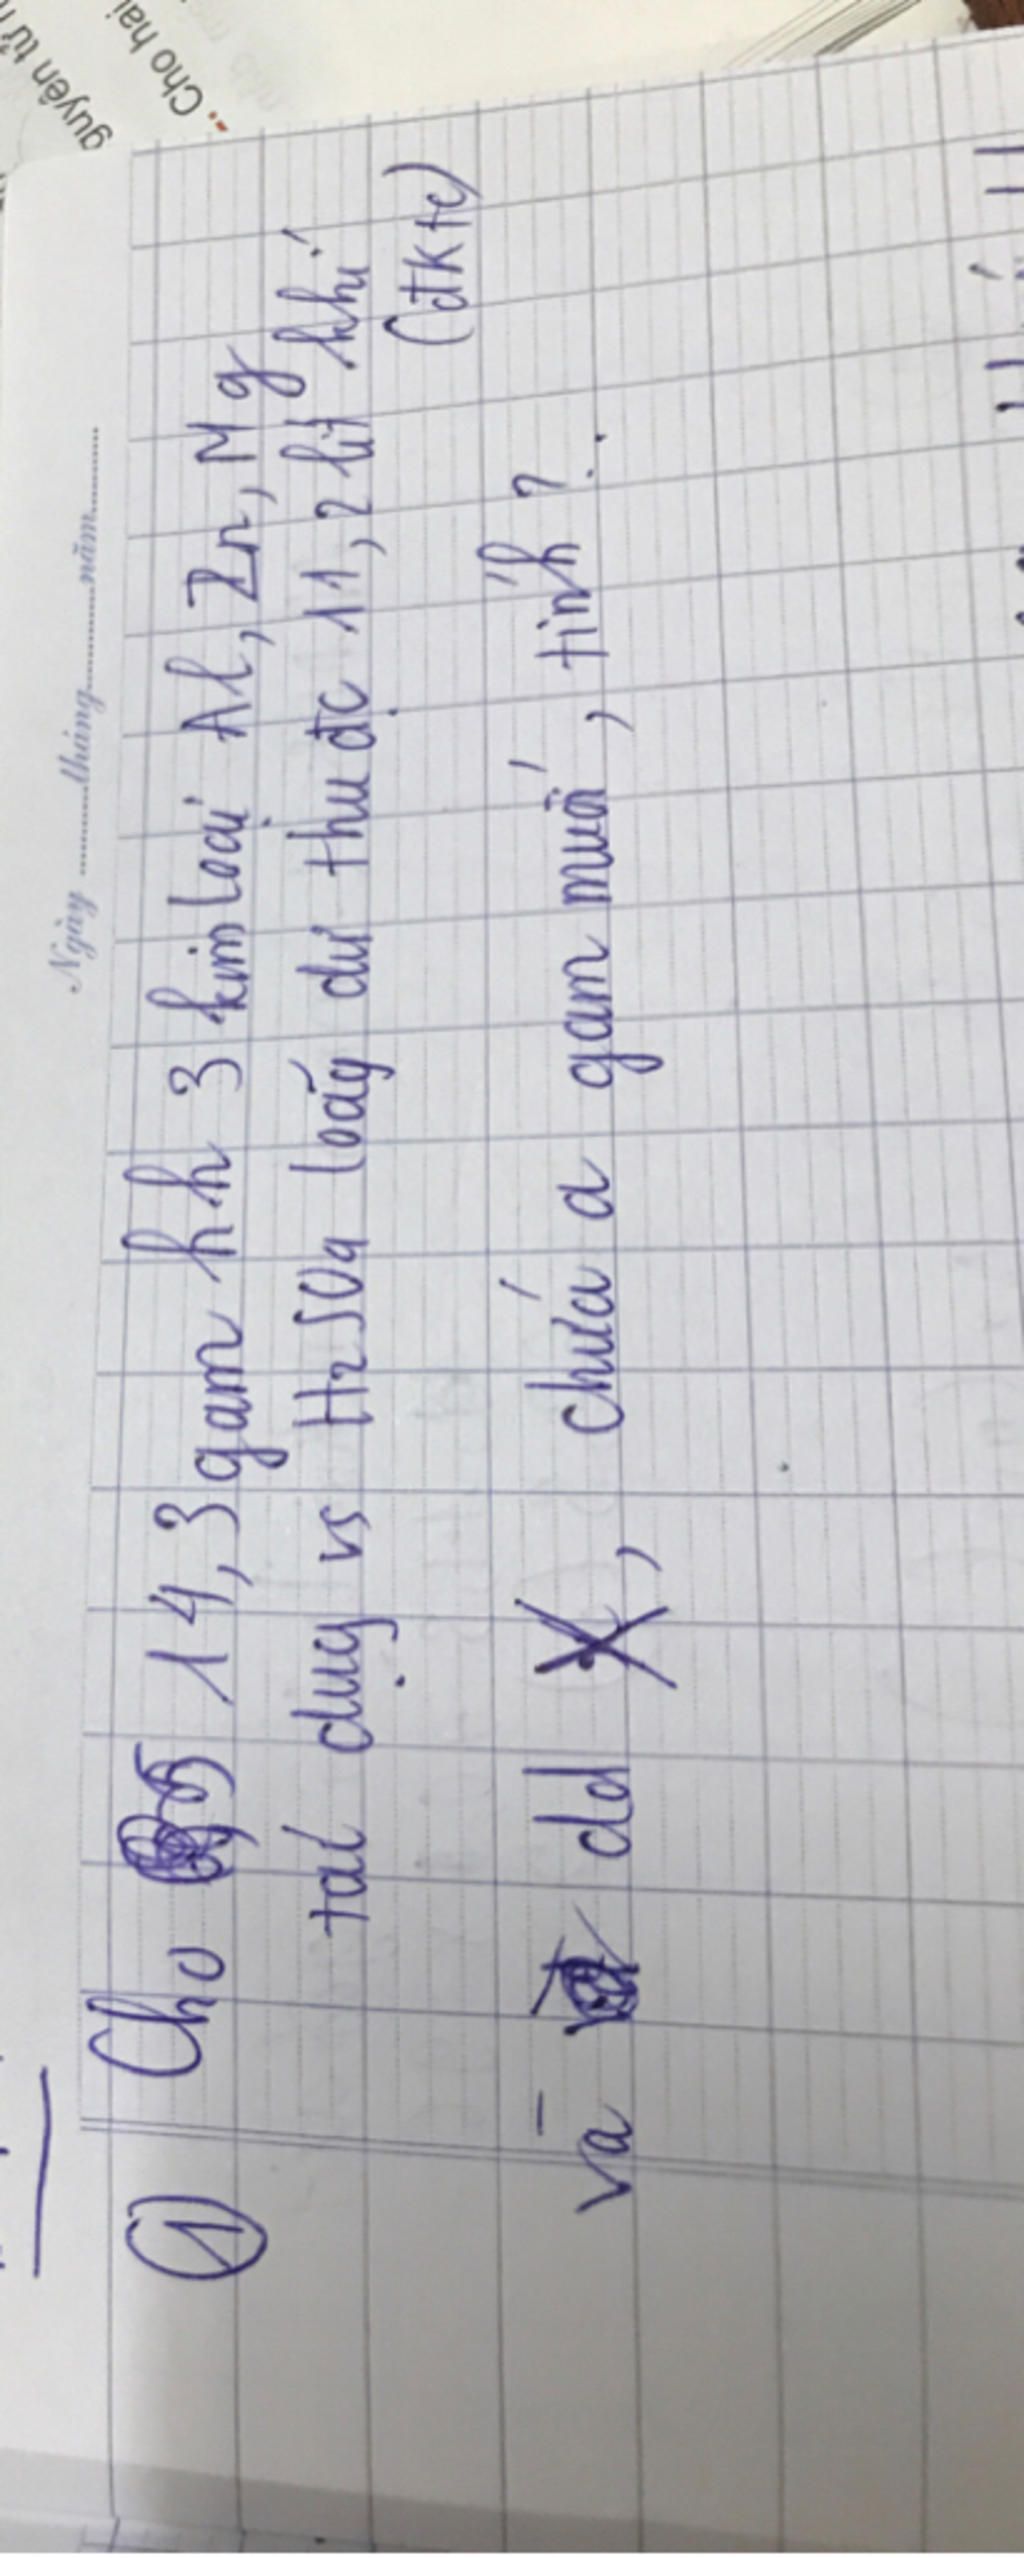 guyên tử
Cho hai
Ngày ........tháng........năm........
① Cho 14,3 gam h.h 3 kim loại Al, Zn, Mg
tác dụg vs H2SO4 loãg dư thu đc 11,2 lít khí
(đktc)
và dd X, chứa a gam muối, tính ?